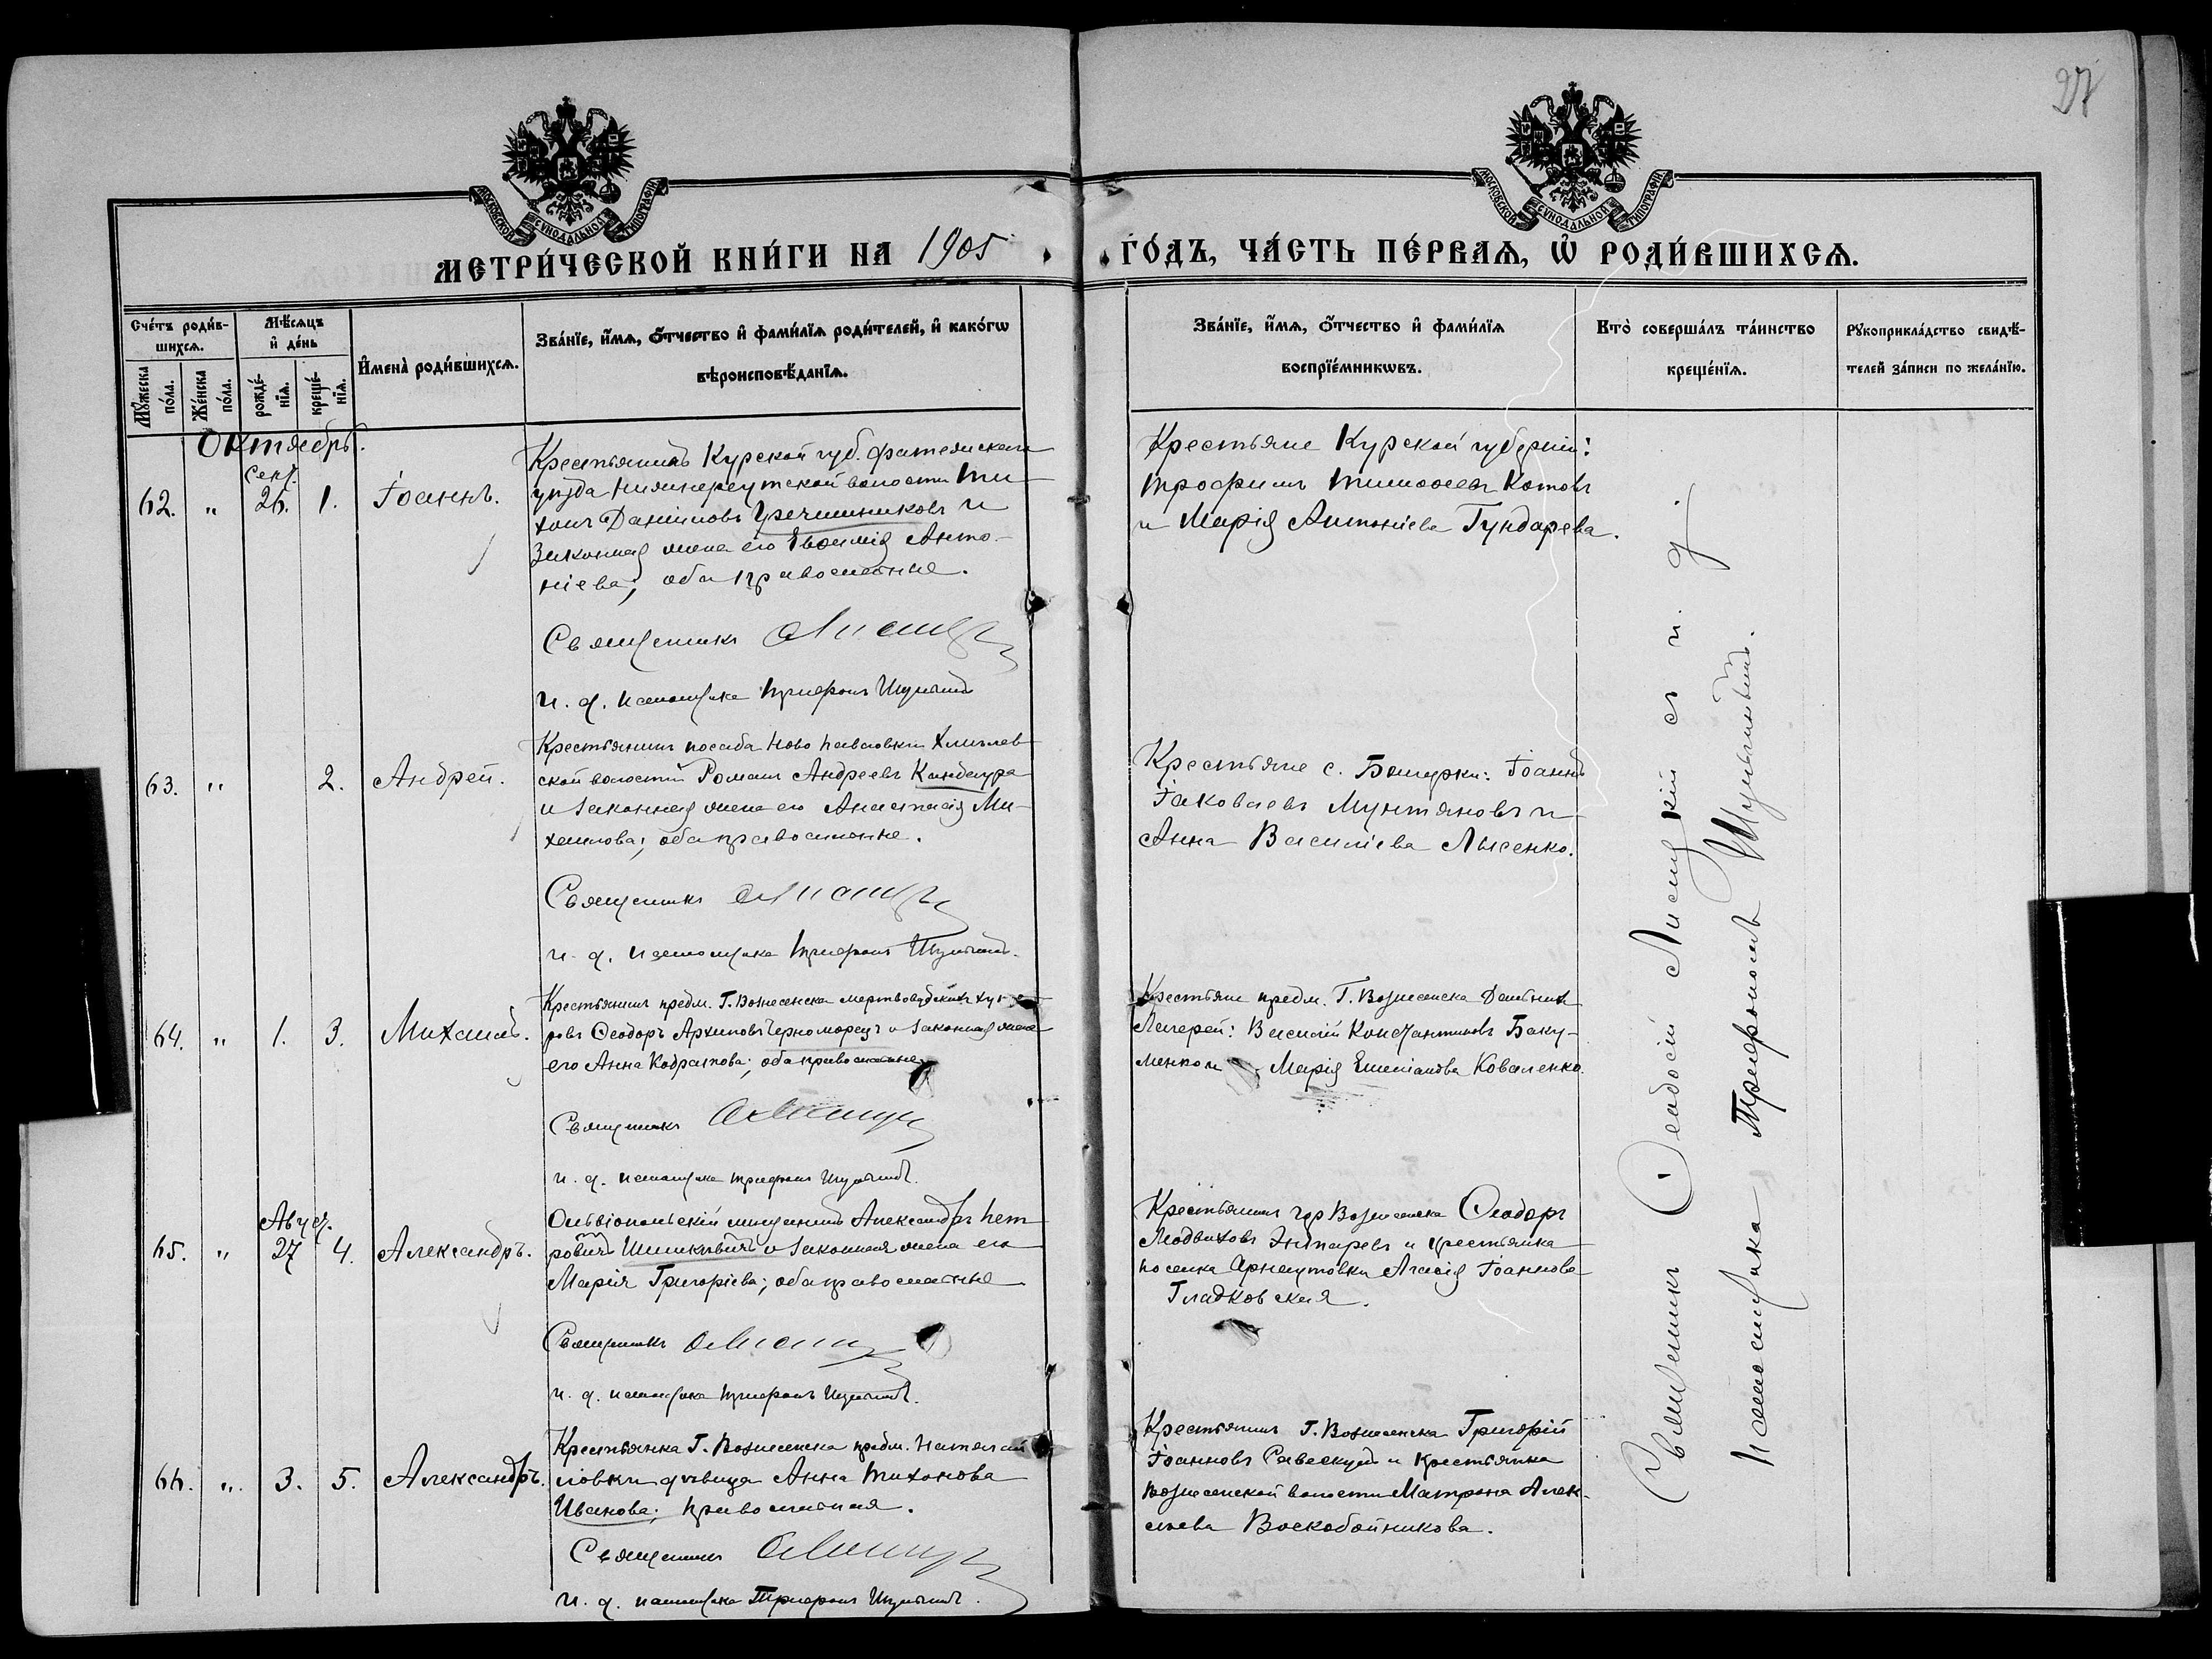 27
МОСКОВСКОЙ СѴНОДАЛЬНОЙ ТИПОГРАФІИ
МОСКОВСКОЙ СѴНОДАЛЬНОЙ ТИПОГРАФІИ
МЕТРИ́ЧЕСКОЙ КНИ́ГИ НА 1905 ГО́ДЪ, ЧА́СТЬ ПЕ́РВАѦ, Ѡ҆ РОДИ́ВШИХСѦ.
Сче́тъ роди́в-
шихсѧ.
Мꙋ́жеска
по́ла.
Же́нска
по́ла.
Мѣ́сѧцъ
и҆ де́нь
рожде́-
нїѧ.
креще́-
нїѧ.
И҆мена̀ роди́вшихсѧ.
Зва́нїе, и҆́мѧ, ѻ҆́тчество и҆ фами́лїѧ роди́телей, и҆ како́гѡ
вѣроисповѣ́данїѧ.
Зва́нїе, и҆́мѧ, ѻ҆́тчество и҆ фами́лїѧ
воспрїе́мникѡвъ.
Кто̀ соверша́лъ та́инство
креще́нїѧ.
Рꙋкоприкла́дство свидѣ́-
телей за́писи по жела́нїю.
Октябрь.
62. " Сент. 26. 1. Іоаннъ.
Крестьянинъ Курской губ. Фатежскаго
уѣзда Нижнереутской волости Ти-
хонъ Даніиловъ Гречишниковъ и
законная жена его Евѳимія Анто-
ніева; оба православные.
Священникъ
и. д. псаломщика Трифонъ
Крестьяне Курской губерніи:
Трофимъ Тимоѳеевъ Котовъ
и Марія Антоніева Гундарева.
63. " 2. Андрей.
Крестьянинъ посада Ново Павловки
ской волости Романъ Андреевъ Кандаура
и законная жена его Анастасія Ми-
хаилова; оба православные.
Священникъ
и. д. псаломщика Трифонъ
Крестьяне с. : Іоаннъ
Іаковлевъ Мунтяновъ и
Анна Василіева Лысенко.
64. " 1. 3. Михаилъ.
Крестьянинъ предм. Г. Вознесенска Мертвоводскихъ хуто-
ровъ Ѳеодоръ Архиповъ Черноморецъ и законная жена
его Анна Кодратова; оба православные
Священникъ
и. д. псаломщика Трифонъ
Крестьяне предм. Г. Вознесенска
Лагерей: Василій Константиновъ Баку-
менко и Марія Емеліанова Коваленко.
65. " Авуст. 27 4. Александръ.
Ольвіопольскій мѣщанинъ Александръ Пет-
ровичъ Шишкевичъ и законная жена его
Марія Григоріева; оба православные
Священникъ
и. д. псаломщика Трифонъ
Крестьянинъ гор Вознесенска Ѳеодоръ
и крестьянка
поселка Арнаутовки Агаѳія Іоаннова
Гладковская.
66. " 3. 5. Александръ.
Крестьянка Г. Вознесенска предм.
ловки дѣвица Анна Тихонова
Иванова; православная.
Священникъ
и. д. псаломщика Трифонъ
Крестьянинъ Г. Вознесенска Григорій
Іоанновъ и крестьянка
Вознесенской волости Матрона Алек-
сѣева Воскобойникова.
Священникъ Ѳеодосій Лисицкій съ и. д.
псаломщика Трифономъ